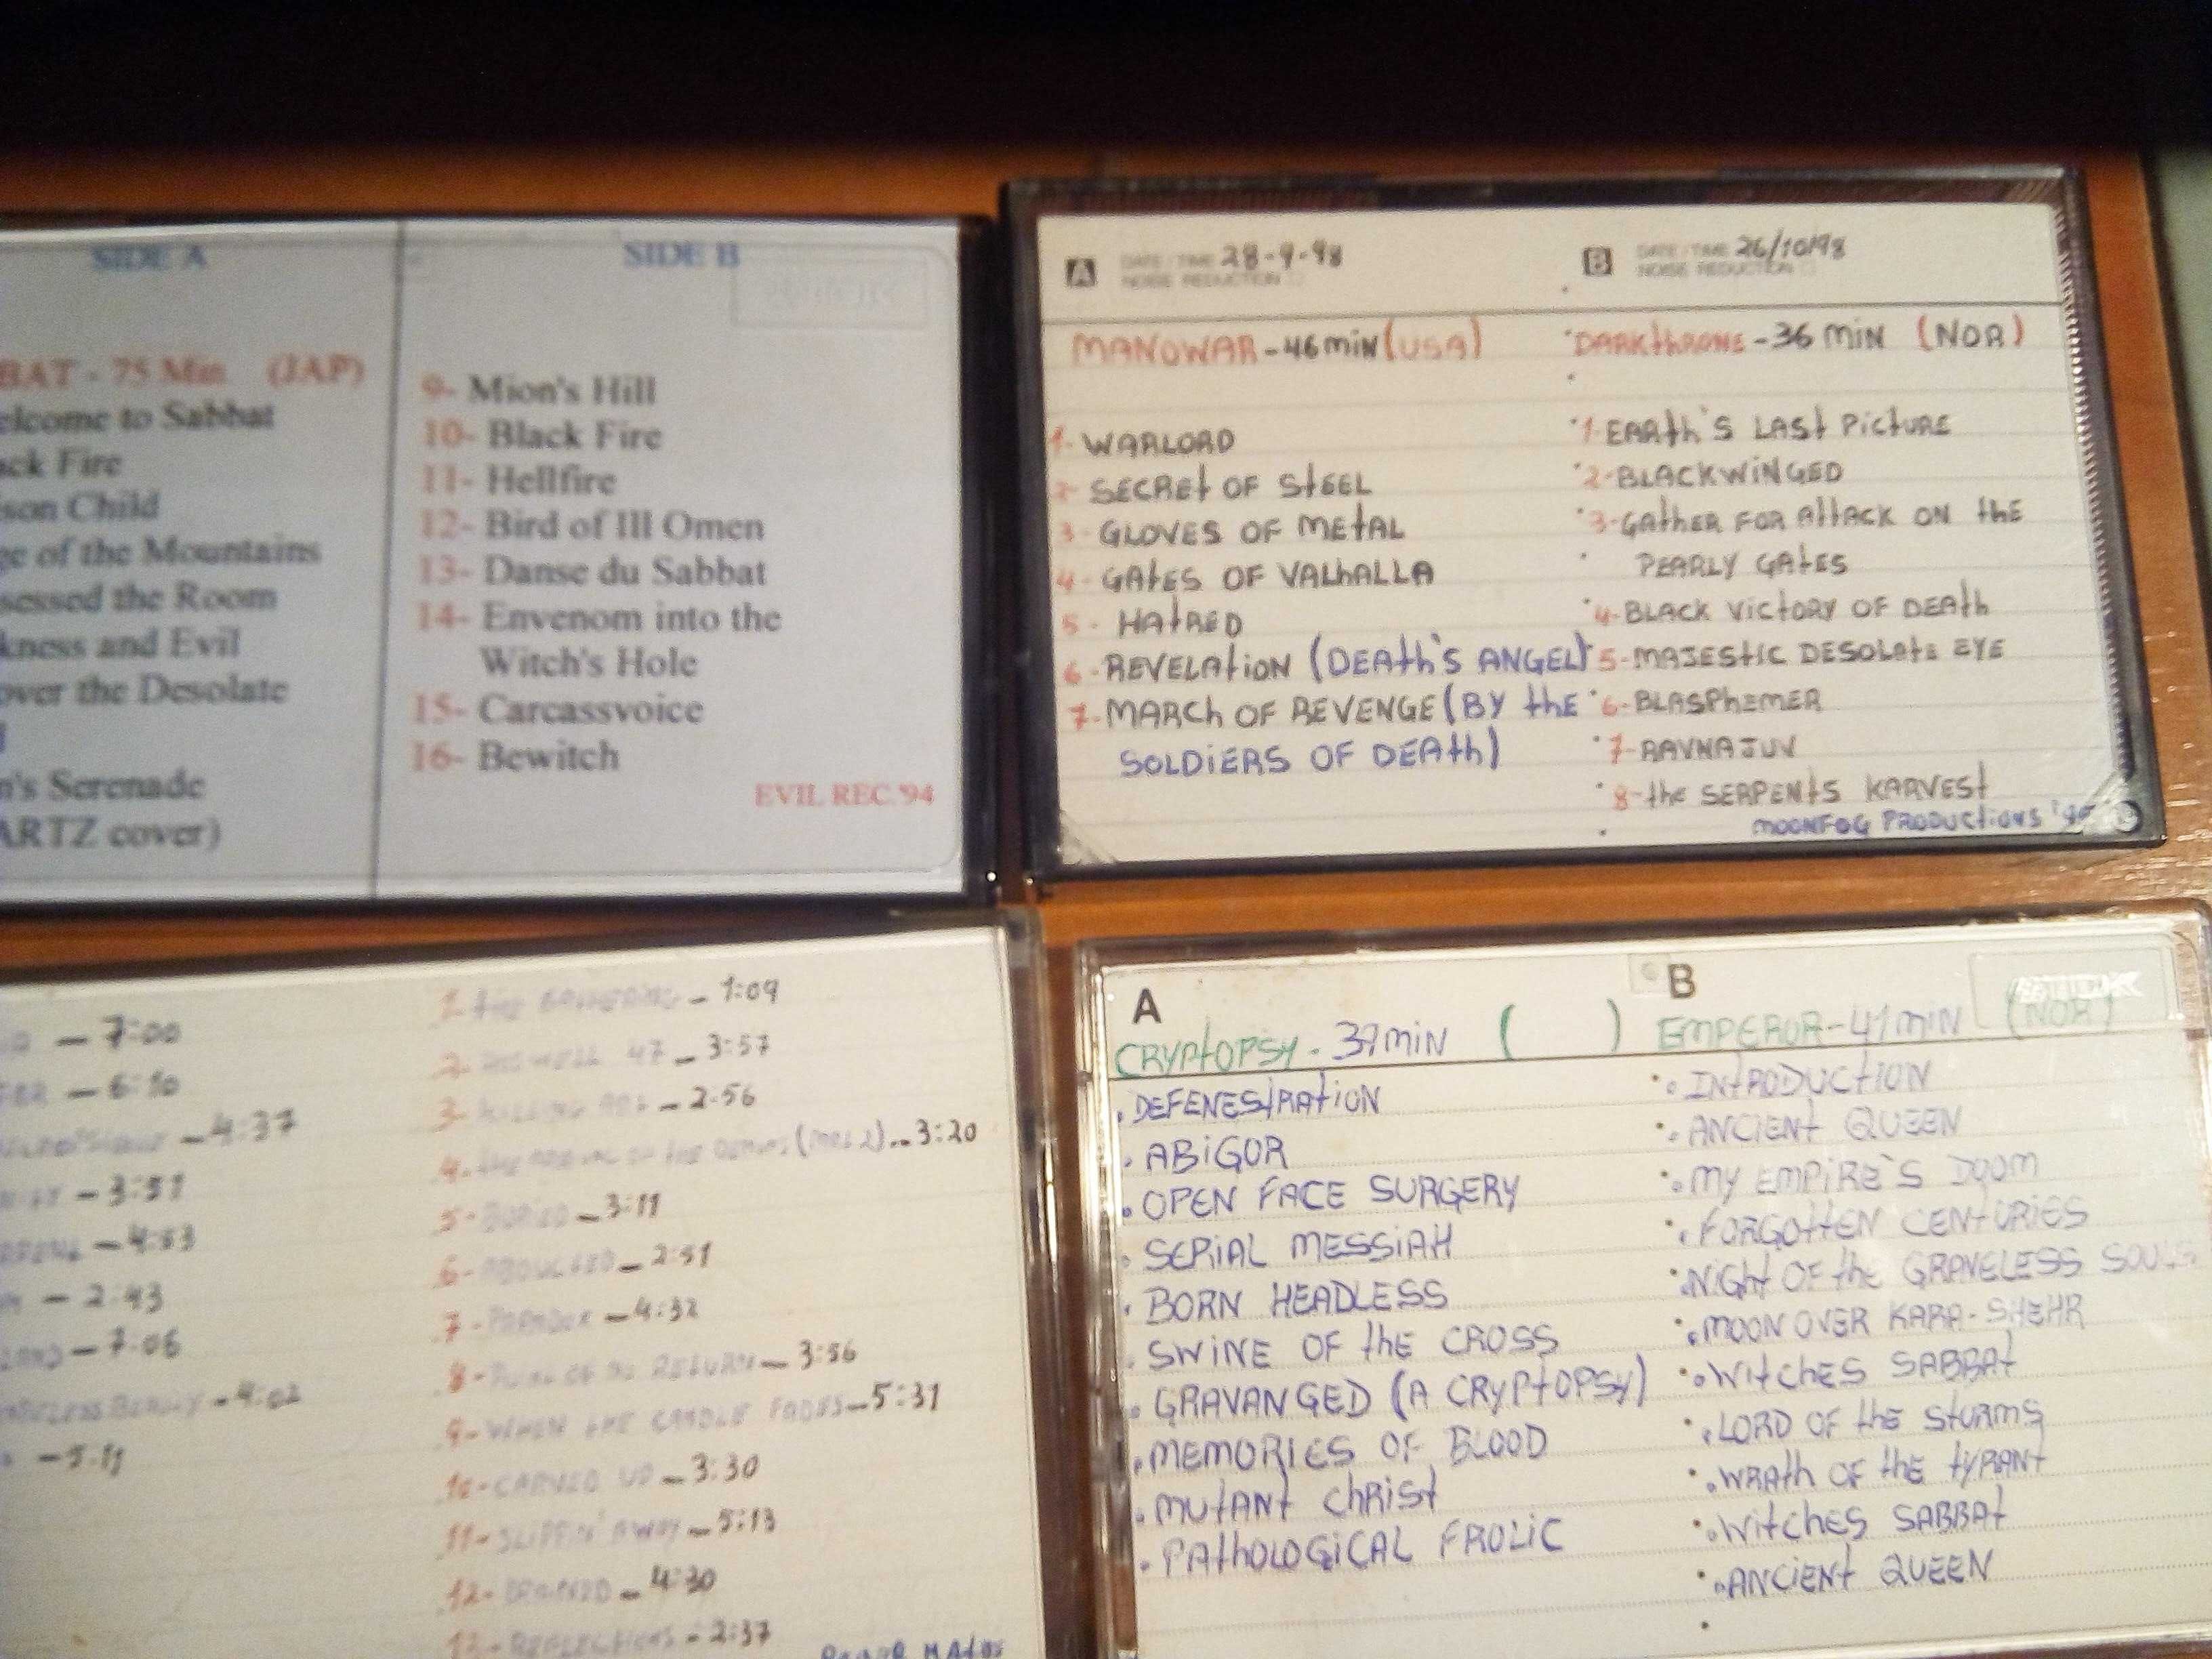 SIDE A
BAT - 75 Min (JAP)
elcome to Sabbat
ack Fire
ison Child
ge of the Mountains
sessed the Room
kness and Evil
over the Desolate
n's Serenade
ARTZ cover)
SIDE B
9- Mion's Hill
10- Black Fire
11- Hellfire
12- Bird of Ill Omen
13- Danse du Sabbat
14- Envenom into the
Witch's Hole
15- Carcassvoice
16- Bewitch
EVIL REC.'94
A DATE / TIME 28-9-98
NOISE REDUCTION
MANOWAR - 46 min (USA)
1- WARLORD
2- SECRET OF STEEL
3- GLOVES OF METAL
4- GATES OF VALHALLA
5- HATRED
6- REVELATION (DEATH'S ANGEL)
7- MARCH OF REVENGE (BY THE
SOLDIERS OF DEATH)
B DATE / TIME 26/10/98
NOISE REDUCTION
DARKTHRONE - 36 MIN (NOR)
1- EARTH'S LAST PICTURE
2- BLACKWINGED
3- GATHER FOR ATTACK ON THE
PEARLY GATES
4- BLACK VICTORY OF DEATH
5- MAJESTIC DESOLATE EYE
6- BLASPHEMER
7- RAVNAJUV
8- THE SERPENTS KARVEST
MOONFOG PRODUCTIONS
— 7:00
— 6:10
— 4:37
— 3:51
— 4:53
— 2:43
— 7:06
- 4:02
- 5:11
1- THE GATHERING - 1:09
2- ROSWELL 47 - 3:57
3- KILLING ART - 2:56
4- THE ARRIVAL OF THE DEMONS (PART 2) - 3:20
5- BURIED - 3:11
6- ABDUCTED - 2:51
7- PARADOX - 4:32
8- POINT OF NO RETURN - 3:56
9- WHEN THE CANDLE FADES - 5:31
10- CARVED UP - 3:30
11- SLIPPIN' AWAY - 5:13
12- DRAINED - 4:30
13- REFLECTIONS - 2:37
A
CRYPTOPSY - 39 MIN ( )
. DEFENESTRATION
. ABIGOR
. OPEN FACE SURGERY
. SERIAL MESSIAH
. BORN HEADLESS
. SWINE OF THE CROSS
. GRAVANGED (A CRYPTOPSY)
. MEMORIES OF BLOOD
. MUTANT CHRIST
. PATHOLOGICAL FROLIC
B
EMPEROR - 41 MIN (NOR)
. INTRODUCTION
. ANCIENT QUEEN
. MY EMPIRE'S DOOM
. FORGOTTEN CENTURIES
. NIGHT OF THE GRAVELESS SOULS
. MOON OVER KARA-SHEHR
. WITCHES SABBAT
. LORD OF THE STORMS
. WRATH OF THE TYRANT
. WITCHES SABBAT
. ANCIENT QUEEN